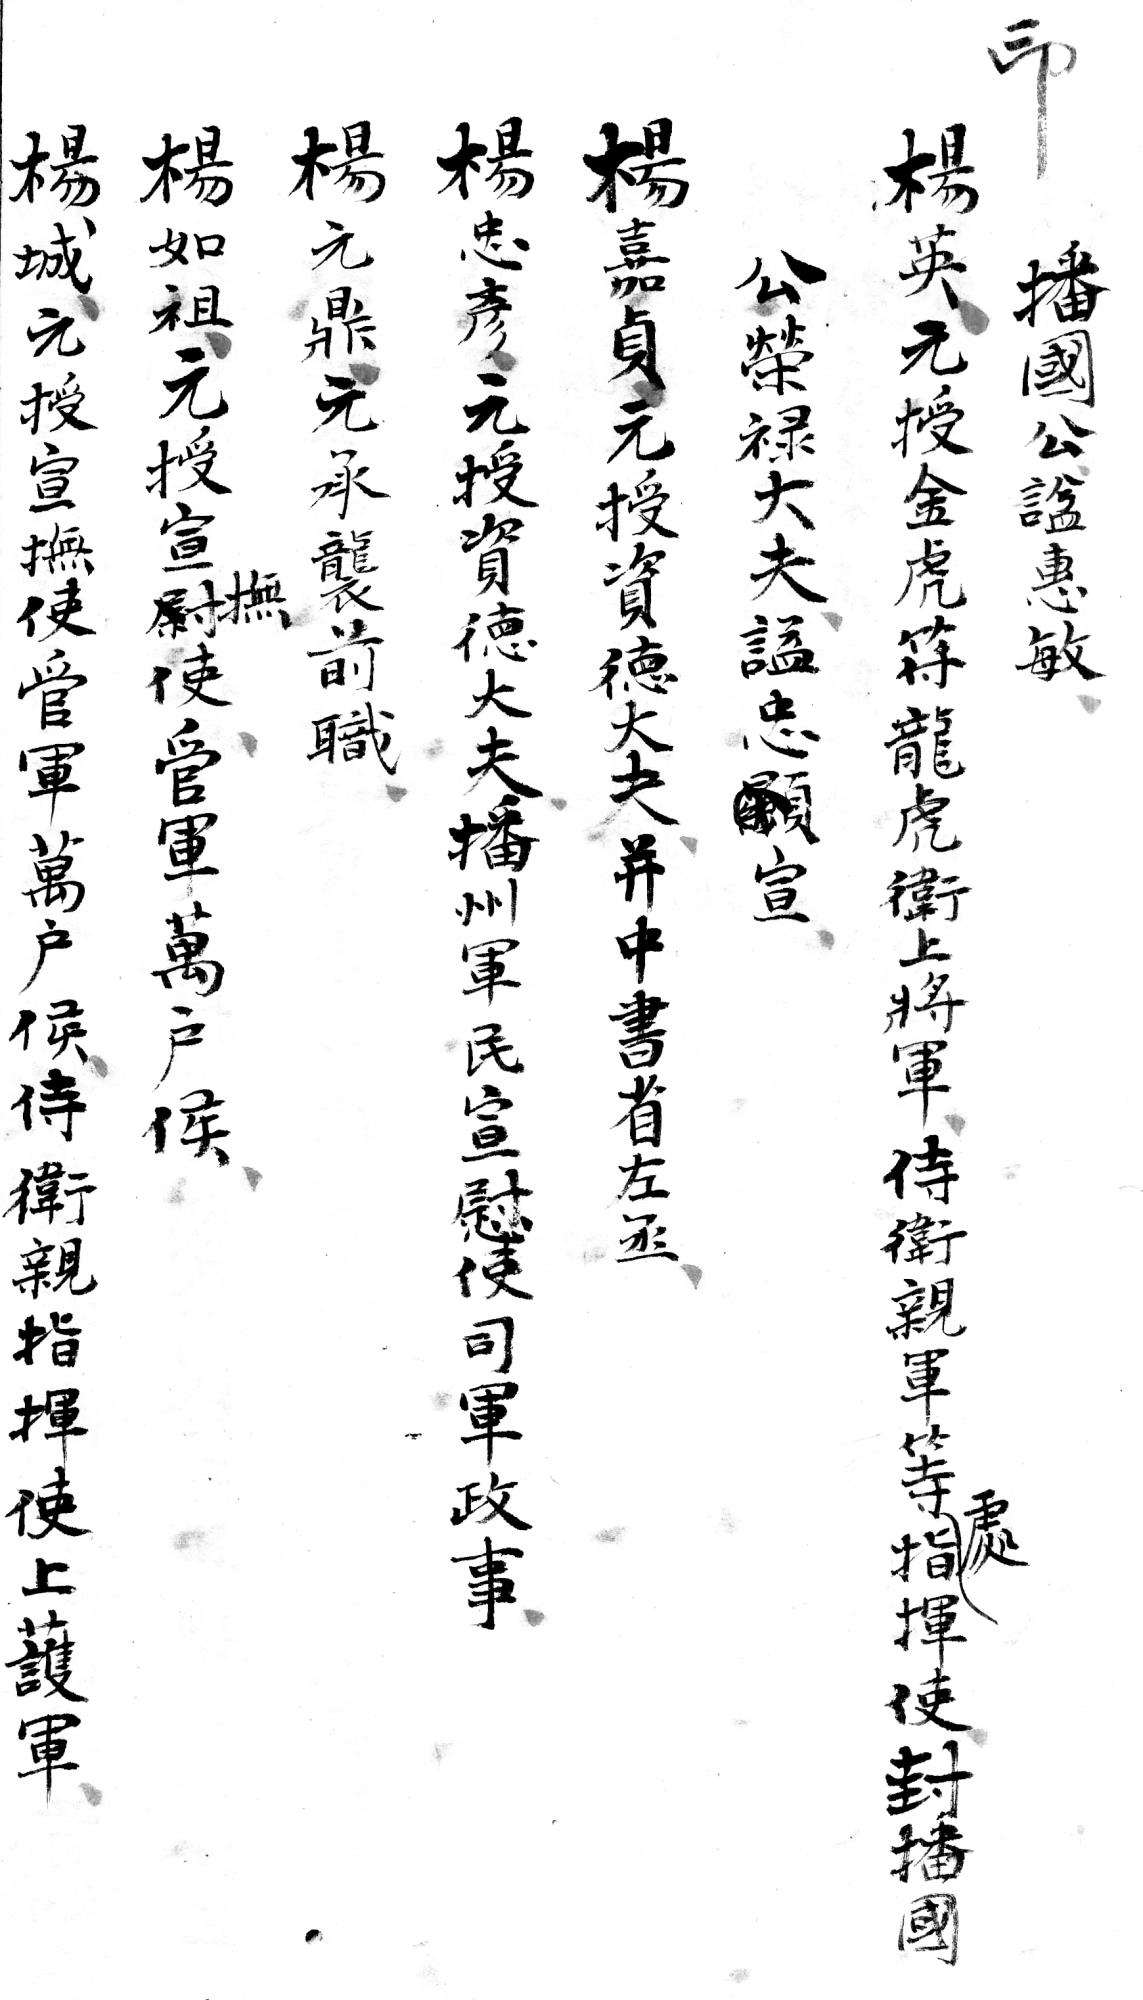 印
播國公諡惠敏
楊英元授金虎符龍虎衛上將軍侍衛親軍等處指揮使封播國
公榮祿大夫諡忠顯宣
楊嘉貞元授資德大夫并中書省左丞
楊忠彥元授資德大夫播州軍民宣慰使司軍政事
楊元鼎元承襲前職
楊如祖元授宣撫尉使管軍萬户侯
楊城元授宣撫使管軍萬户侯侍衛親指揮使上護軍